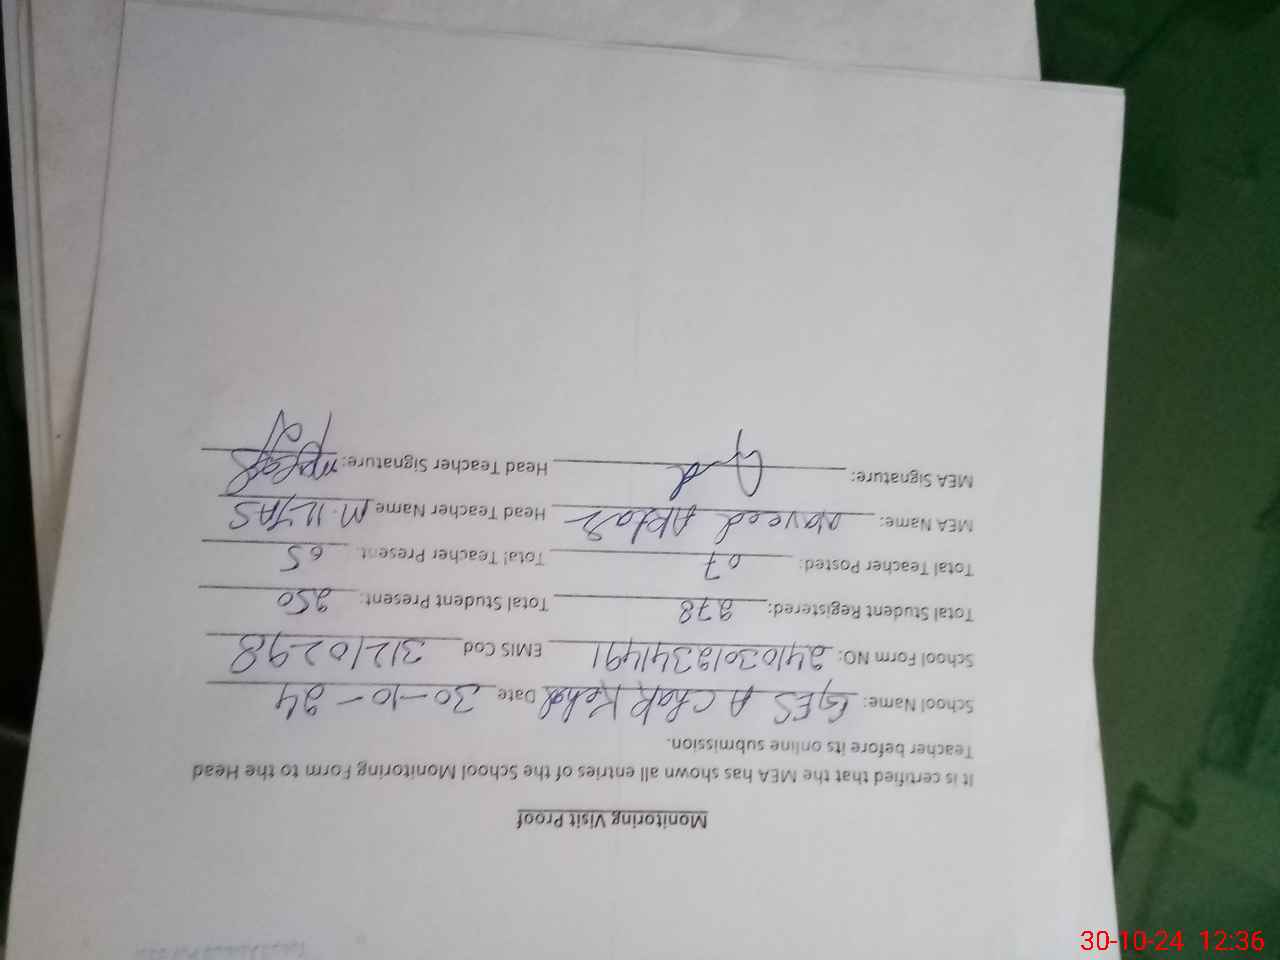 Monitoring Visit Proof
It is certified that the MEA has shown all entries of the School Monitoring Form to the Head
Teacher before its online submission.
School Name: GES A Chak Kehal Date 30-10-24
School Form NO: 24103012341491 EMIS Cod 31210298
Total Student Registered: 278 Total Student Present: 250
Total Teacher Posted: 07 Total Teacher Present: 05
MEA Name: Naveed Akhtar Head Teacher Name M.ILYAS
MEA Signature: Head Teacher Signature:
30-10-24 12:36